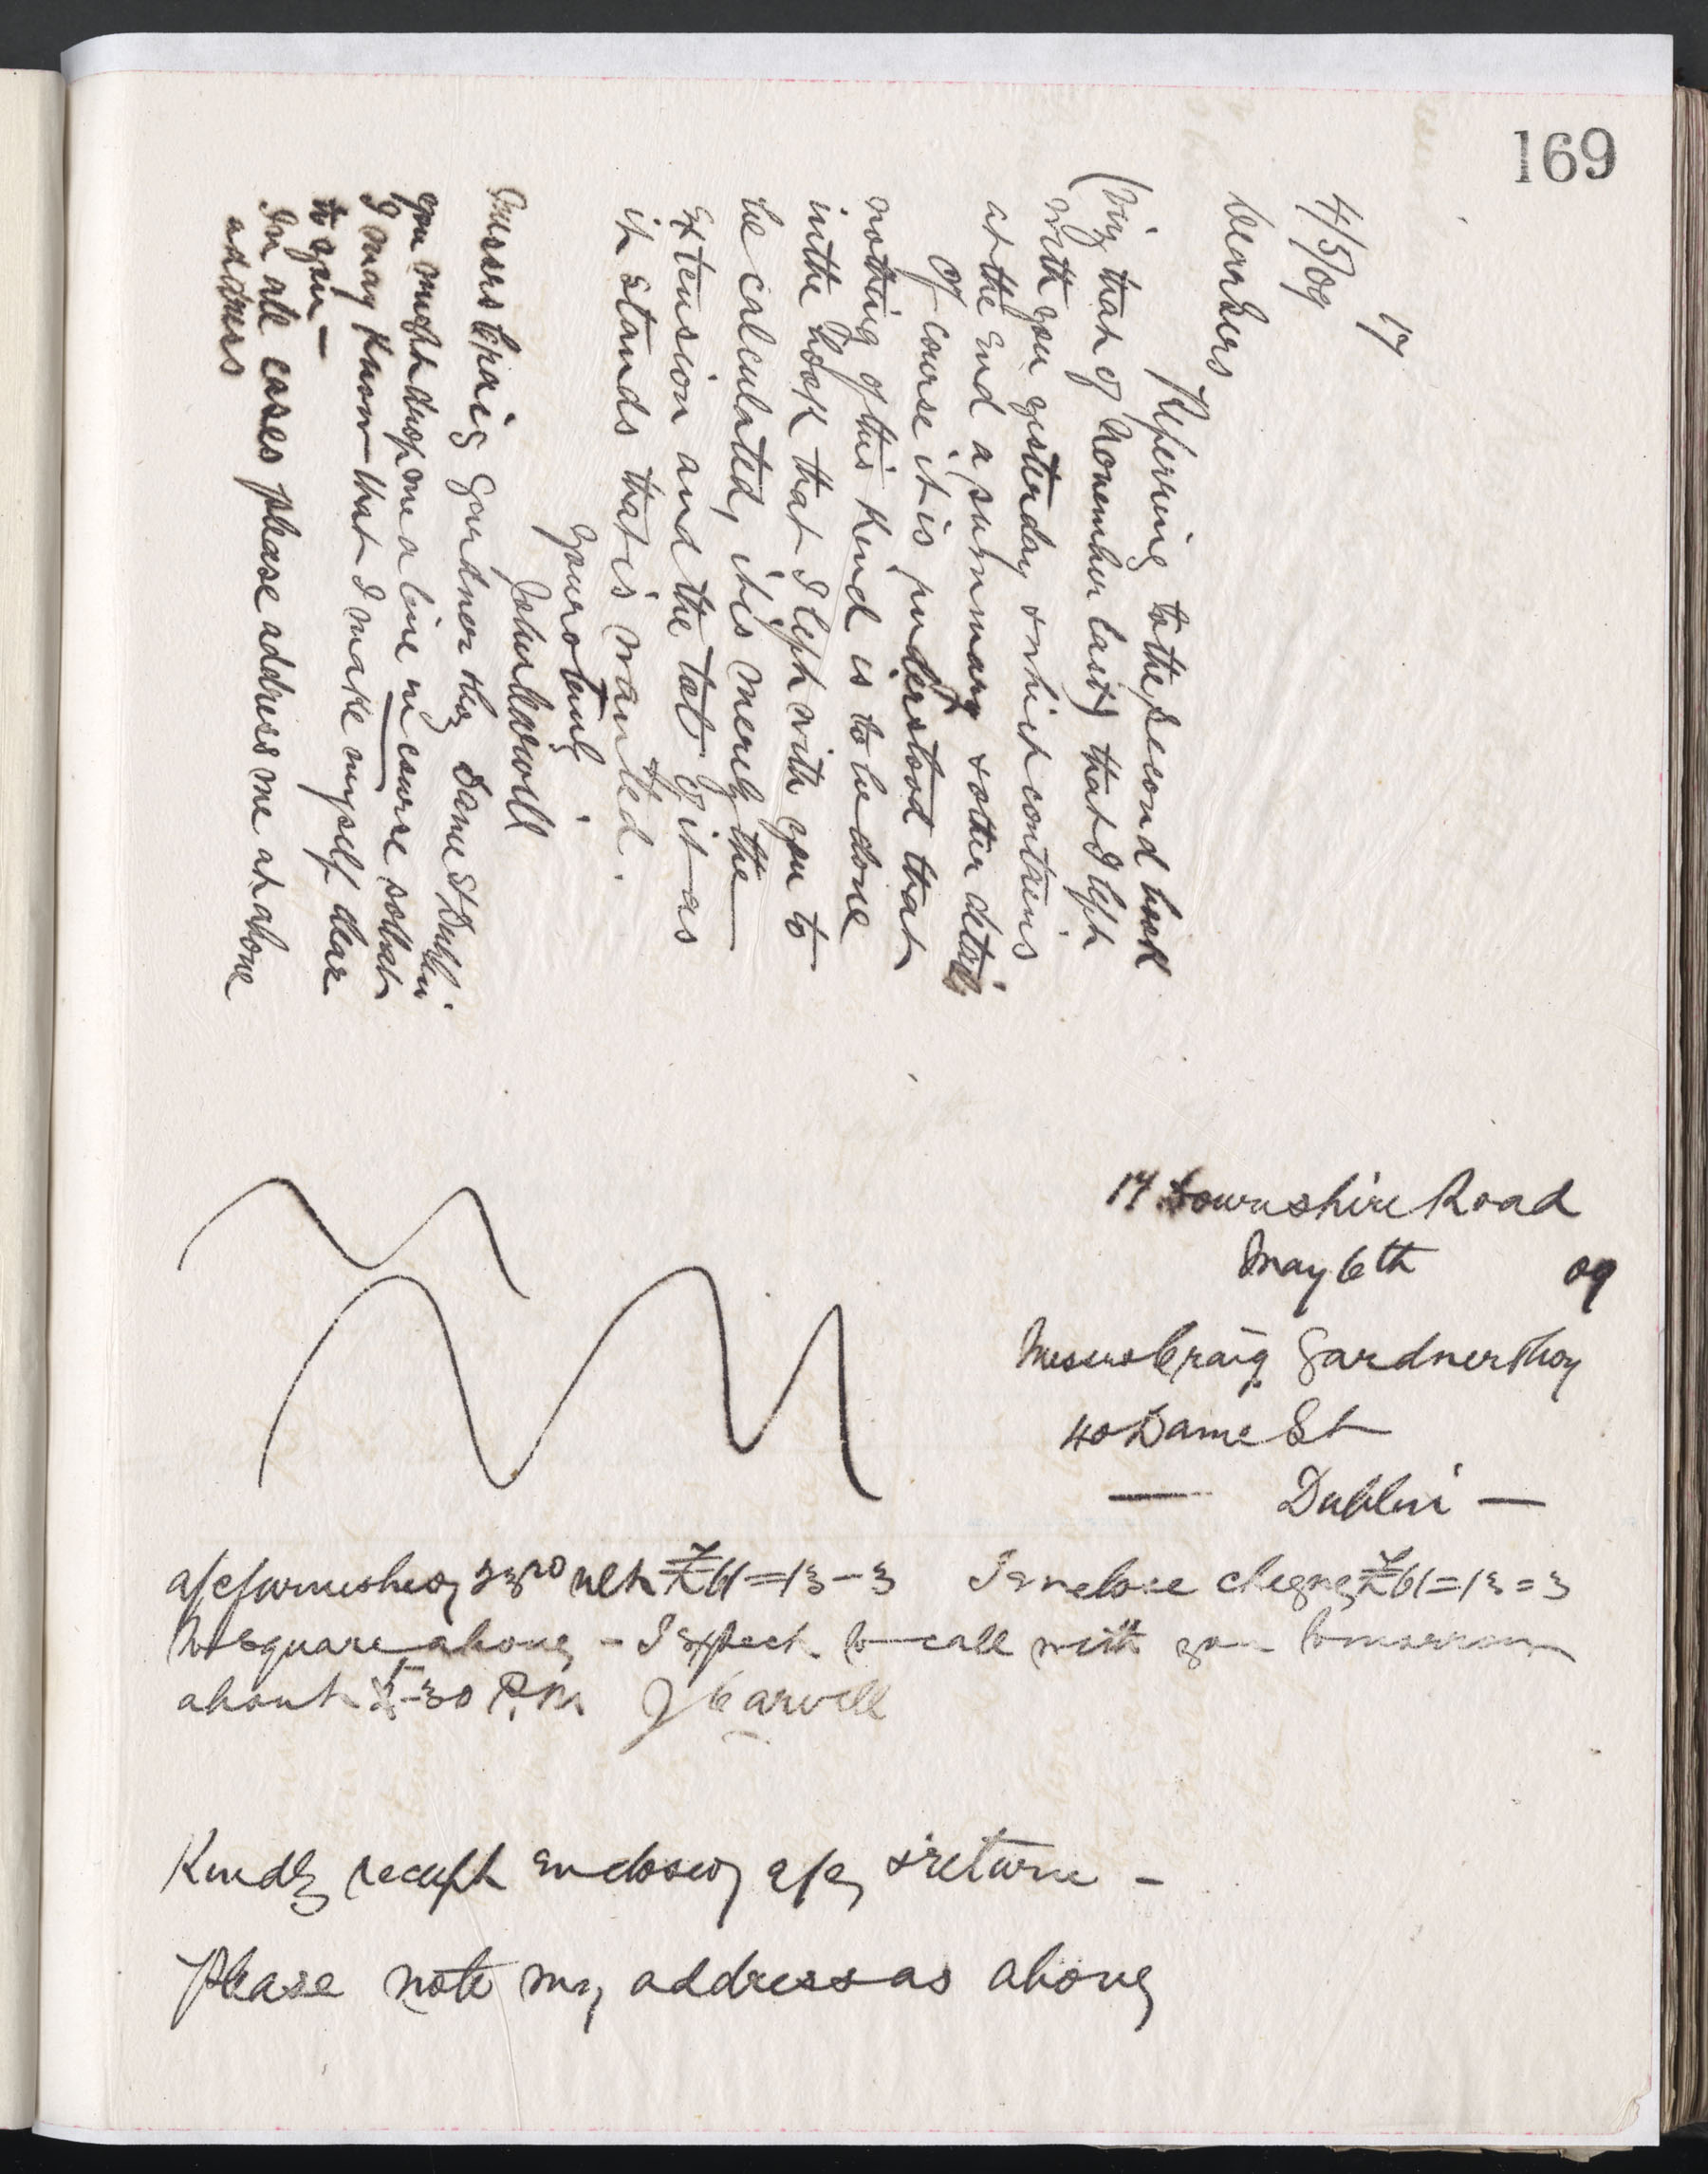 169
17
4/5/09
Dear Sirs
Referring to the second book
(viz that of November last) that I left
with you yesterday & which contains
at the end a summary & other details
Of course it is understood that
nothing of this kind is to be done
in the book that I left with you to
be calculated, it is merely the
extension and the tot of it as
it stands that is wanted.
Yours truly
John Carvill
Messrs Craig Gardner & Coy Dame St Dublin.
you might drop me a line in course so that
I may know that I make myself clear
to you —
In all cases please address me as above
address
17 Downshire Road
May 6th 09
Messrs Craig Gardner & Coy
40 Dame St
— Dublin —
a/c furnished 23rd ult £61=13-3 I enclose cheque £61=13=3
to square above - I expect to call with you tomorrow
about 5-30 P.M. J Carvill
Kindly receipt enclosed a/c & return -
Please note my address as above